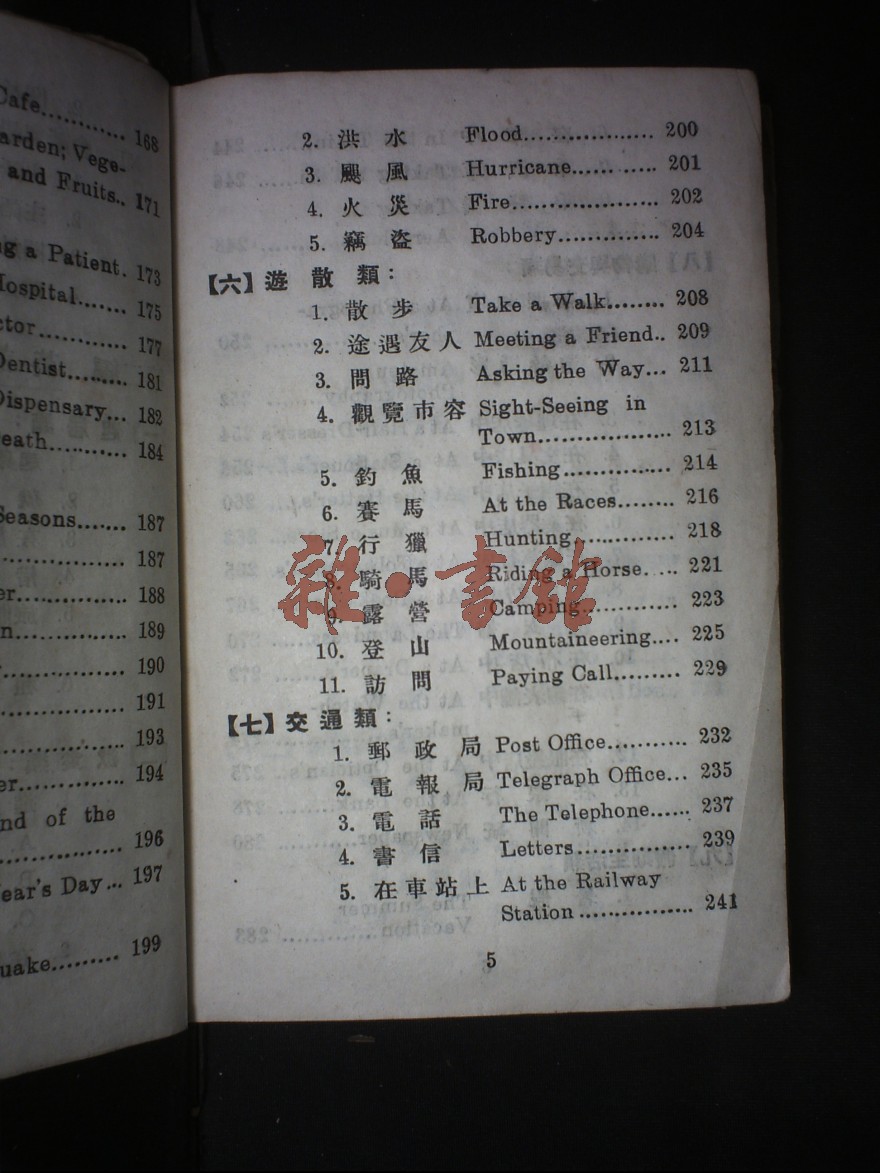 Cafe............ 168
arden; Vege-
and Fruits.. 171
g a Patient. 173
ospital....... 175
ctor............ 177
Dentist......... 181
Dispensary... 182
eath........... 184
Seasons....... 187
187
er.............. 188
n............... 189
190
191
193
er.............. 194
nd of the
196
ear's Day... 197
uake......... 199
2. 洪水 Flood.................... 200
3. 颶風 Hurricane............. 201
4. 火災 Fire..................... 202
5. 竊盜 Robbery.............. 204
【六】遊散類：
1. 散步 Take a Walk........ 208
2. 途遇友人 Meeting a Friend.. 209
3. 問路 Asking the Way... 211
4. 觀覽市容 Sight-Seeing in
Town.................. 213
5. 釣魚 Fishing............... 214
6. 賽馬 At the Races........ 216
7. 行獵 Hunting............... 218
8. 騎馬 Riding a Horse..... 221
9. 露營 Camping.............. 223
10. 登山 Mountaineering.... 225
11. 訪問 Paying Call......... 229
【七】交通類：
1. 郵政局 Post Office........... 232
2. 電報局 Telegraph Office... 235
3. 電話 The Telephone...... 237
4. 書信 Letters................ 239
5. 在車站上 At the Railway
Station ................ 241
5
雜·書館